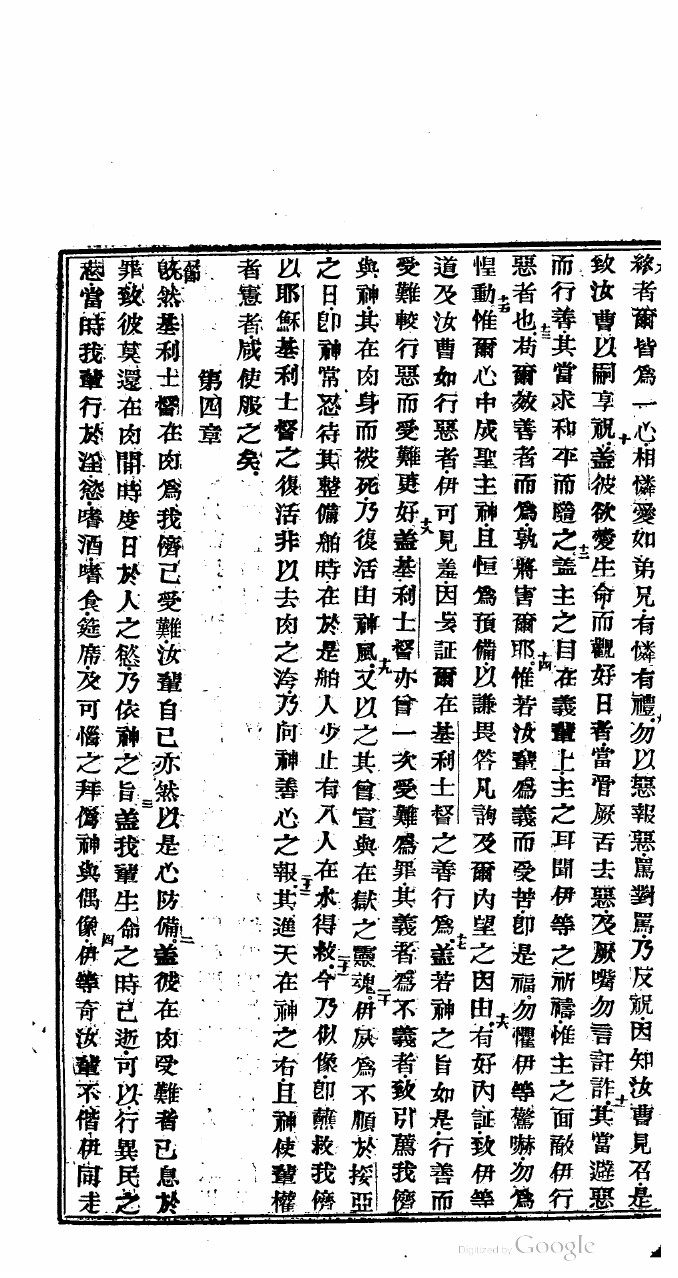 終者爾皆爲一心相憐愛如弟兄有憐有禮勿以惡報惡罵對罵乃反祝因知汝曹見召是
致汝曹以嗣享祝十蓋彼欲愛生命而觀好日者當管厥舌去惡及厥嘴勿言訐詐十一其當避惡
而行善其當求和平而隨之十二蓋主之目在義輩上主之耳聞伊等之祈禱惟主之面敵伊行
惡者也十三苟爾效善者而爲孰將害爾耶十四惟若汝輩爲義而受苦卽是福勿懼伊等驚嚇勿爲
惶動十五惟爾心中成聖主神且恒爲預備以謙畏答凡詢及爾內望之因由十六有好內証致伊等
道及汝曹如行惡者伊可見羞因妄証爾在基利士督之善行爲十七蓋若神之旨如是行善而
受難較行惡而受難更好十八蓋基利士督亦曾一次受難爲罪其義者爲不義者致引薦我儕
與神其在肉身而被死乃復活由神風十九又以之其曾宣與在獄之靈魂二十伊夙爲不順於挼亞
之日卽神常忍待其整備舶時在於是舶人少止有八人在水得救二十一今乃似像卽蘸救我儕
以耶穌基利士督之復活非以去肉之洿乃向神善心之報二十二其進天在神之右且神使輩權
者憲者咸使服之矣
第四章
一節旣然基利士督在肉爲我儕已受難汝輩自己亦然以是心防備二蓋彼在肉受難者已息於
罪致彼莫還在肉間時度日於人之慾乃依神之旨三蓋我輩生命之時已逝可以行異民之
慾當時我輩行於淫慾嗜酒嗜食筵席及可惱之拜僞神與偶像四伊等奇汝輩不偕伊同走
Digitized by Google